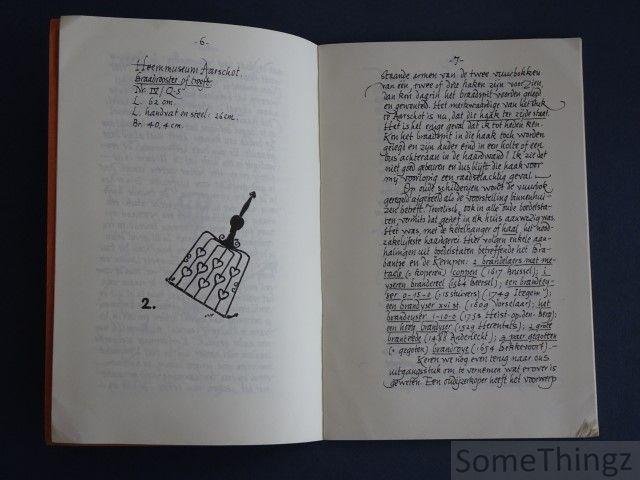 -6-
Heemmuseum Aarschot.
Braadrooster of trooft
Nr. IV/Q-5
L. 62 cm.
L. handvat en steel: 26 cm.
Br. 40,4 cm.
2.
-7-
staande armen van de twee vuurbokken
van een twee of drie haken zijn voorzien,
dan kon daarin het braadspit worden gelegd
en gewenteld. Het merkwaardige van het stuk
te Aarschot is nu, dat die haak ter zijde staat.
Het is het enige geval dat ik tot heden ken.
Kon het braadspit in die haak toch worden
gelegd en zijn ander eind in een holte of een
bus achteraan in de haardwand? Ik zie dat
niet goed gebeuren en dus blijft die haak voor
mij voorlopig een raadselachtig geval.
Op oude schilderijen wordt de vuurbok
geregeld afgebeeld als de voorstelling binnenhui-
zen betreft. Trouwens, ook in alle oude boedelsta-
ten, vermits dat gerief in elk huis aanwezig was.
Het was, met de ketelhanger of haal, het nood-
zakelijkste haardgerei. Hier volgen enkele aan-
halingen uit boedelstaten betreffende het Bra-
bantse en de Kempen: 2 brandelaers met me-
taele (= koperen) coppen (1617 Brussel); i
yseren brandereel (1564 Beersel); een brandey-
ser 0-15-0 (=15 stuivers) (1749 Itegem);
een brandyser xvi st. (1609 Vorselaar); het
brandeyser 1-10-0 (1758 Heist-op-den-Berg);
een hoop brandyser (1529 Herentals); 2 grote
brantrede (1488 Anderlecht); 2 paer gegoten
(= gegoten) brandroye (1654 Bekkevoort).-
Keren we nog even terug naar ons
uitgangsstuk om te vernemen wat er over is
geweten. Een oudijzerkoper heeft het voorwerp
SomeThingz